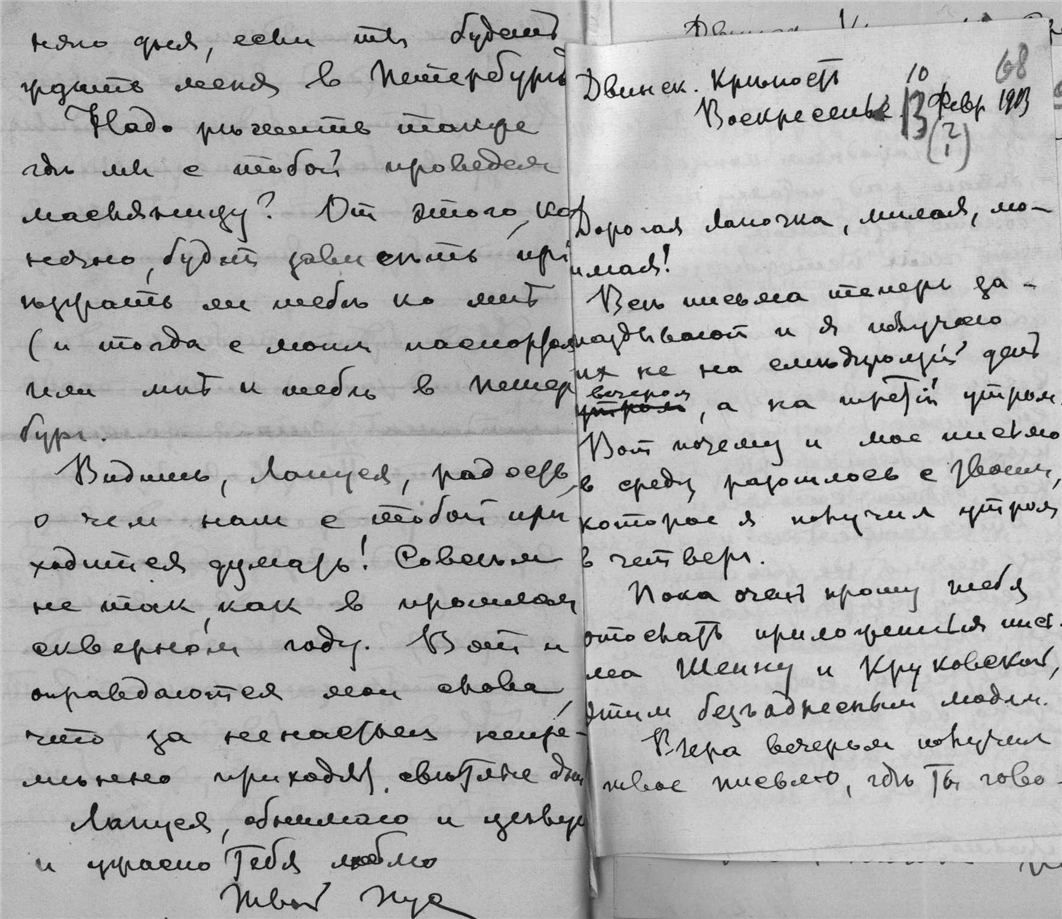 няго дня, если ты будешь
ждать меня в Петербургѣ
Надо рѣшить также
гдѣ мы с тобой проведем
масляницу? От этого, ко
нечно, будет зависѣть прі
ѣзжать ли тебѣ ко мнѣ
(и тогда с моим паспортом
или мнѣ к тебѣ в Петер
бург.
Видишь, Лапуся, радость,
о чем нам с тобой при
ходится думать! Совсѣм
не так, как в прошлом
скверном году. Вот и
оправдаются мои слова,
что за ненастьем непре-
мѣнно приходят свѣтлые дни
Лапуся, обнимаю и цѣлую
и ужасно Тебя люблю
Твой Пус
68
Двинск. Крѣпость
10
Воскресенье 13 Февр 1913
(?)
Дорогая Лапочка, милая, лю-
имая!
Всѣ письма теперь за-
паздывают и я получаю
их не на слѣдующій день
вечером
утром, а на третій утром.
Вот почему и мое письмо
в среду разошлось с Твоим,
которое я получил утром
в четверг.
Пока очень прошу тебя
отослать приложенныя пись-
ма Шенку и Круковской,
этим безъадресным людям.
Вчера вечером получил
твое письмо, гдѣ Ты гово-